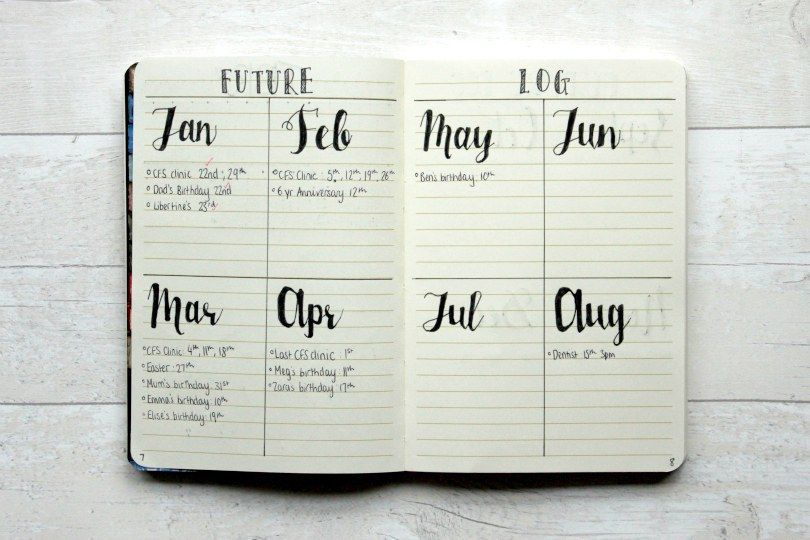 FUTURE LOG
Jan
CFS clinic 22nd, 29th
Dad's Birthday 22nd
Libertine's 23rd
Feb
CFS Clinic: 5th, 12th, 19th, 26th
6 yr Anniversary 12th
Mar
CFS Clinic: 4th, 11th, 18th
Easter: 27th
Mum's birthday: 31st
Emma's birthday: 10th
Elise's birthday: 19th
Apr
Last CFS clinic: 1st
Meg's birthday: 11th
Zara's birthday: 17th
7
May
Ben's birthday: 10th
Jun
Jul
Aug
Dentist 15th 3pm
8